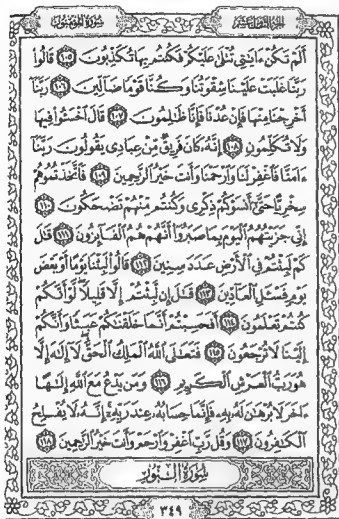 الجزء الثامن عشر سورة المؤمنون
أَلَمْ تَكُنْ ءَايَٰتِى تُتْلَىٰ عَلَيْكُمْ فَكُنتُم بِهَا تُكَذِّبُونَ ۝١٠٥ قَالُوا۟
رَبَّنَا غَلَبَتْ عَلَيْنَا شِقْوَتُنَا وَكُنَّا قَوْمًا ضَآلِّينَ ۝١٠٦ رَبَّنَآ
أَخْرِجْنَا مِنْهَا فَإِنْ عُدْنَا فَإِنَّا ظَٰلِمُونَ ۝١٠٧ قَالَ ٱخْسَـُٔوا۟ فِيهَا
وَلَا تُكَلِّمُونِ ۝١٠٨ إِنَّهُۥ كَانَ فَرِيقٌ مِّنْ عِبَادِى يَقُولُونَ رَبَّنَآ
ءَامَنَّا فَٱغْفِرْ لَنَا وَٱرْحَمْنَا وَأَنتَ خَيْرُ ٱلرَّٰحِمِينَ ۝١٠٩ فَٱتَّخَذْتُمُوهُمْ
سِخْرِيًّا حَتَّىٰٓ أَنسَوْكُمْ ذِكْرِى وَكُنتُم مِّنْهُمْ تَضْحَكُونَ ۝١١٠
إِنِّى جَزَيْتُهُمُ ٱلْيَوْمَ بِمَا صَبَرُوٓا۟ أَنَّهُمْ هُمُ ٱلْفَآئِزُونَ ۝١١١ قَٰلَ
كَمْ لَبِثْتُمْ فِى ٱلْأَرْضِ عَدَدَ سِنِينَ ۝١١٢ قَالُوا۟ لَبِثْنَا يَوْمًا أَوْ بَعْضَ
يَوْمٍ فَسْـَٔلِ ٱلْعَآدِّينَ ۝١١٣ قَٰلَ إِن لَّبِثْتُمْ إِلَّا قَلِيلًا لَّوْ أَنَّكُمْ
كُنتُمْ تَعْلَمُونَ ۝١١٤ أَفَحَسِبْتُمْ أَنَّمَا خَلَقْنَٰكُمْ عَبَثًا وَأَنَّكُمْ
إِلَيْنَا لَا تُرْجَعُونَ ۝١١٥ فَتَعَٰلَى ٱللَّهُ ٱلْمَلِكُ ٱلْحَقُّ لَآ إِلَٰهَ إِلَّا
هُوَ رَبُّ ٱلْعَرْشِ ٱلْكَرِيمِ ۝١١٦ وَمَن يَدْعُ مَعَ ٱللَّهِ إِلَٰهًا
ءَاخَرَ لَا بُرْهَٰنَ لَهُۥ بِهِۦ فَإِنَّمَا حِسَابُهُۥ عِندَ رَبِّهِۦٓ إِنَّهُۥ لَا يُفْلِحُ
ٱلْكَٰفِرُونَ ۝١١٧ وَقُل رَّبِّ ٱغْفِرْ وَٱرْحَمْ وَأَنتَ خَيْرُ ٱلرَّٰحِمِينَ ۝١١٨
سُورَةُ النُّورِ
٣٤٩